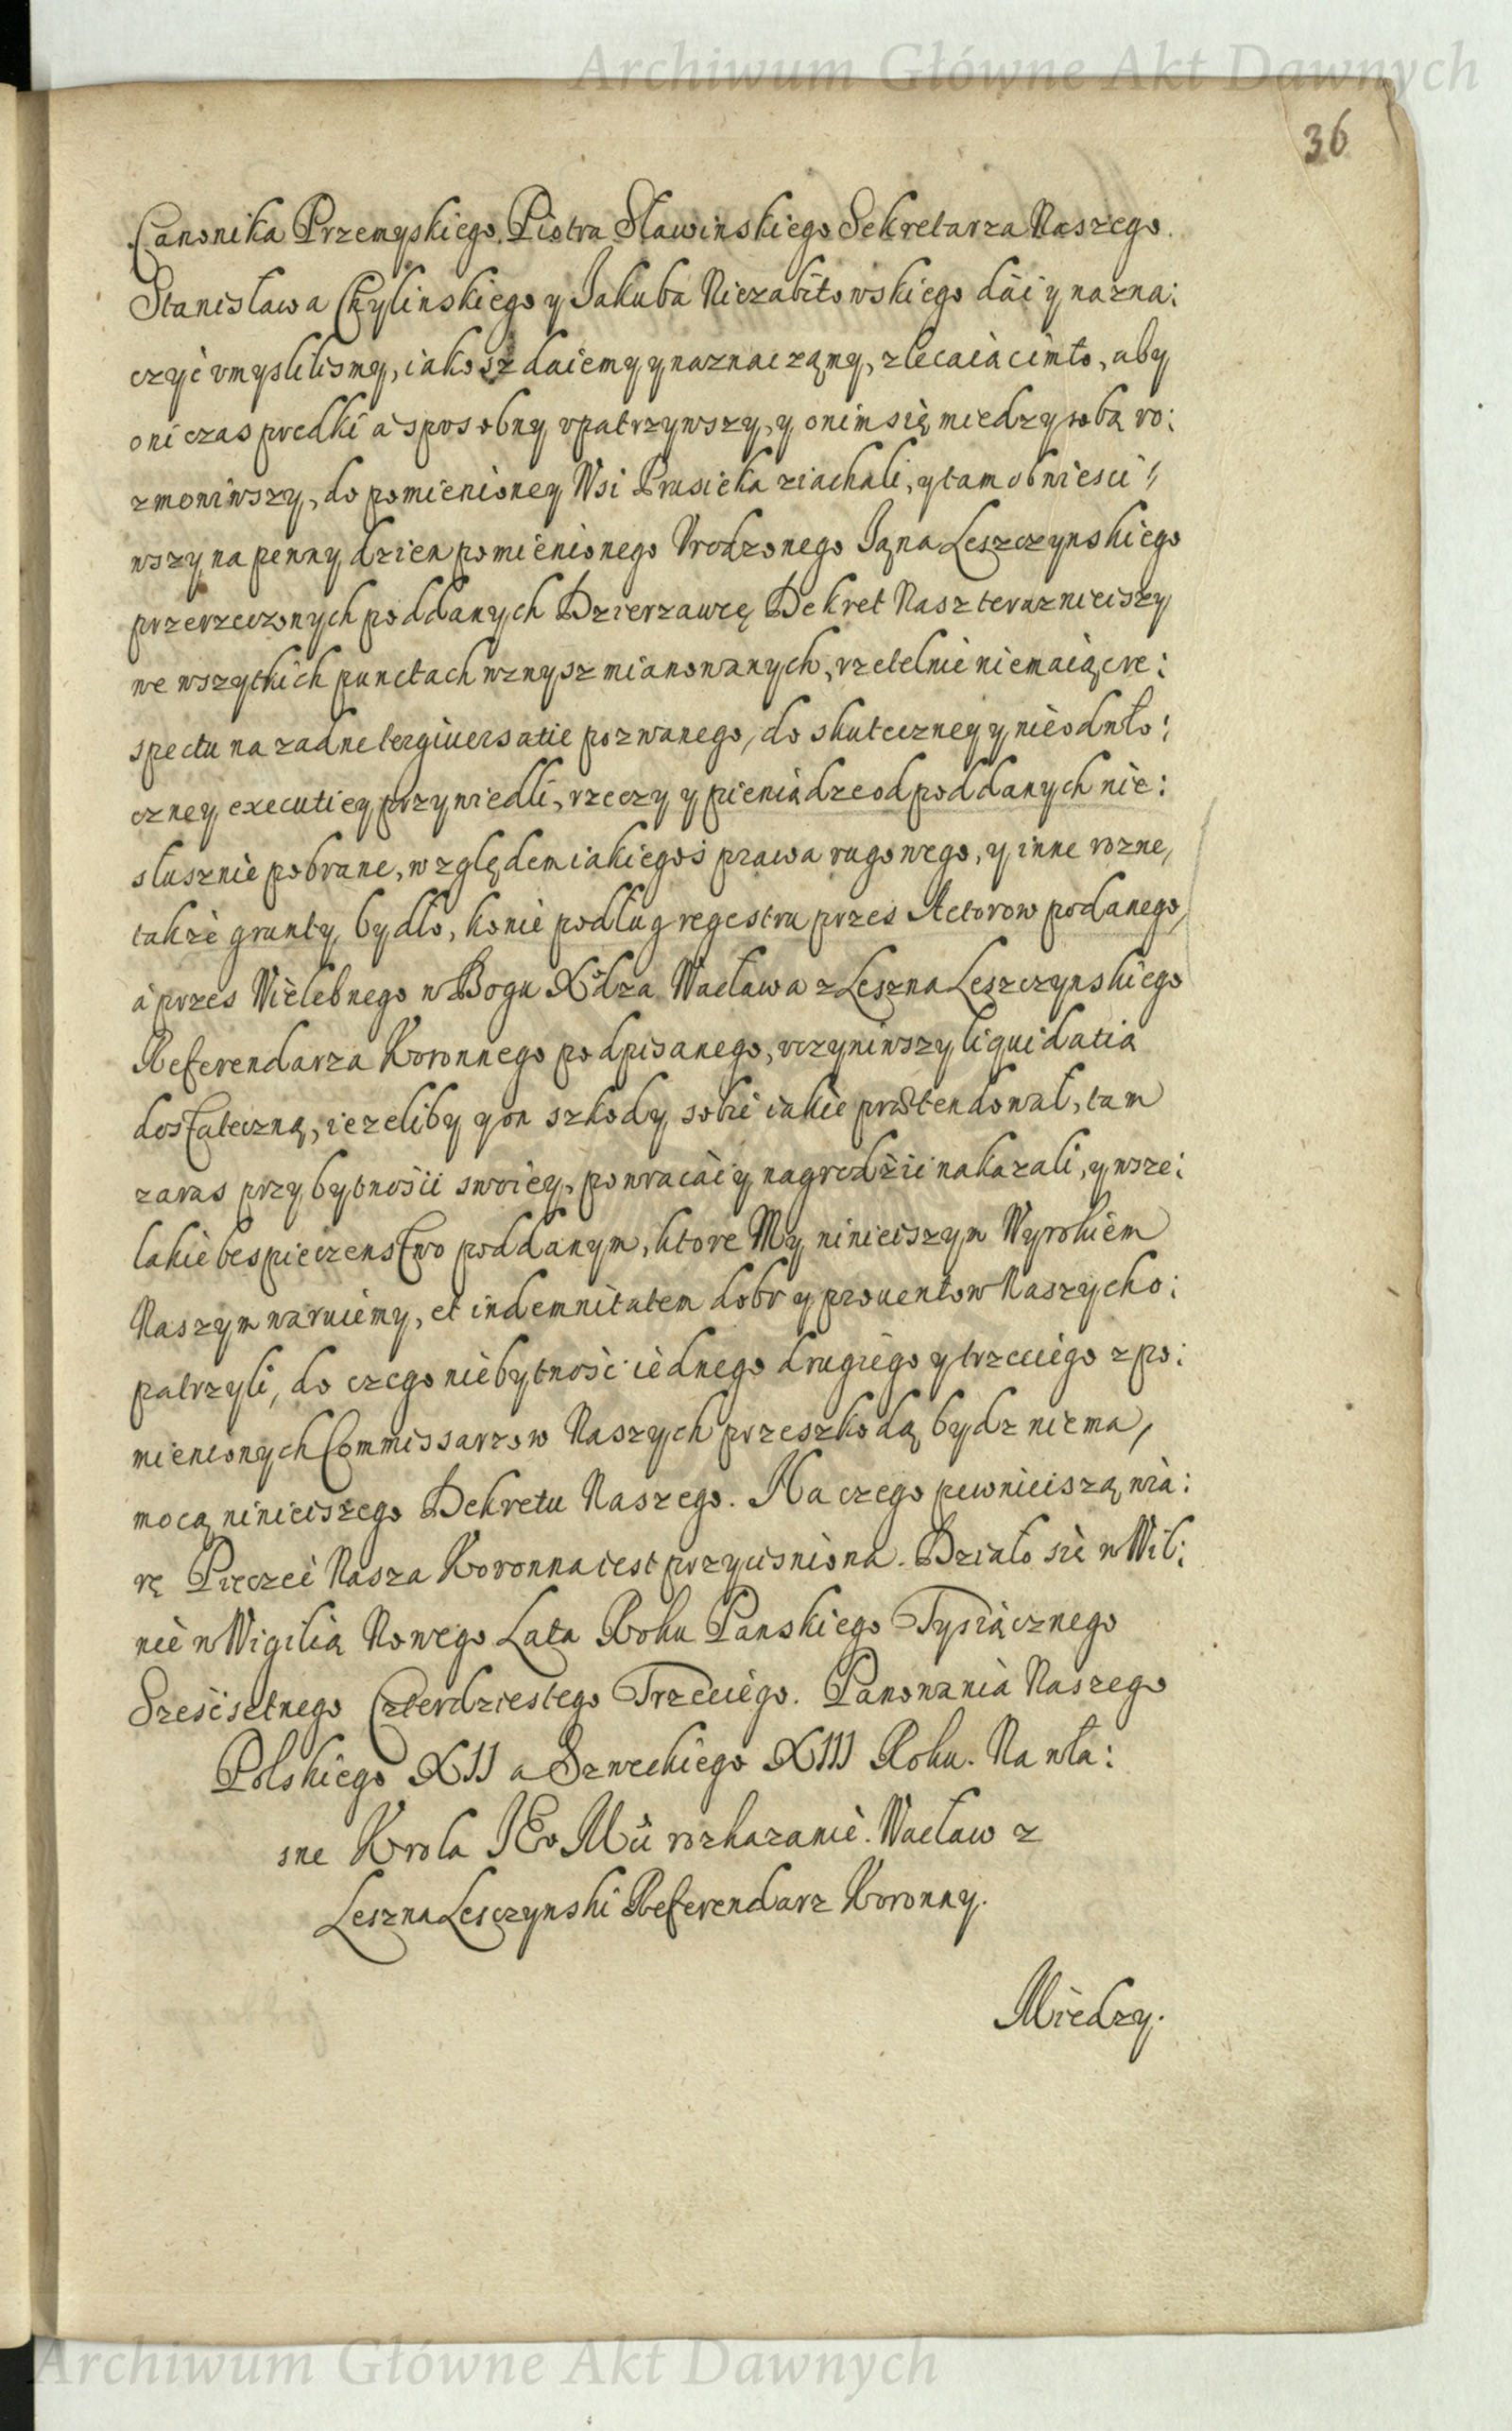 Archiwum Główne Akt Dawnych
36
Canonika Przemyskiego, Piotra Sławinskiego Sekretarza Naszego.
Stanisława Chylinskiego y Jakuba Niezabitowskiego dáć y nazna:
czyć vmyslilismy, iakosz daiemy y naznaczamy, zlecaiąc im to, aby
oni czas prędki á sposobny vpatrzywszy, y o nim się miedzy sobą ro:
zmowiwszy, do pomienioney Wsi Prusieka ziachali, y tam obwiesci:
wszy na pewny dzien pomienionego Vrodzonego Jana Leszczynskiego
przerzeczonych poddanych Dzierzawcę Dekret Nasz terazniejszy
we wszytkich punctach wznysz mianowanych, rzetelnie niemaiąc re:
spectu na zadne tergiuersatie pozwanego, do skuteczney y nieodwło:
czney executiey przywiedli, rzeczy y pieniądze od poddanych nie:
słusznie pobrane, względem iakiegoś prawa rugowego, y inne rozne,
także grunty, bydło, konie podług regestru przes Actorow podanego,
á przes Wielebnego w Bogu Xdza Wacława z Leszna Leszczynskiego
Referendarza Koronnego podpisanego, vczyniwszy liquidatią
dostateczną, iezeliby y on szkody sobie iakie prætendował, tam
zaras przy bytnośći swoiey, powracáć y nagrodźić nakazali, y wsze:
lakie bespieczenstwo poddanym, ktore My ninieiszym Wyrokiem
Naszym waruiemy, et indemnitatem dobr y prouentow Naszych o:
patrzyli, do czego niebytność iednego drugiego y trzeciego z po:
mienionych Commissarzow Naszych przeszkodą bydz niema,
mocą ninieiszego Dekretu Naszego. Na czego pewnieiszą wia:
rę Pieczęć Nasza Koronna iest przyciśniona. Działo się w Wil:
nie w Wigilią Nowego Lata Roku Panskiego Tysiącznego
Szescsetnego Czterdziestego Trzeciego. Panowania Naszego
Polskiego XII a Szweckiego XIII Roku. Na wła:
sne Krola JEo Mći rozkazanie. Wacław z
Leszna Lesczynski Referendarz Koronny.
Miedzy.
Archiwum Główne Akt Dawnych